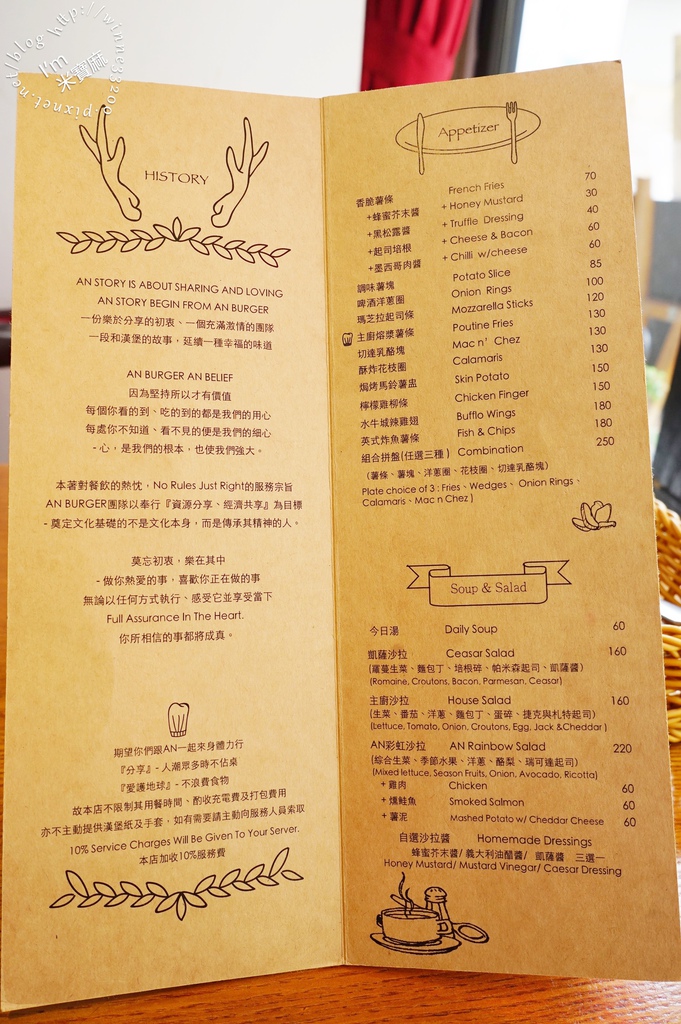 I'm
米寶麻
HISTORY
AN STORY IS ABOUT SHARING AND LOVING
AN STORY BEGIN FROM AN BURGER
一份樂於分享的初衷、一個充滿激情的團隊
一段和漢堡的故事，延續一種幸福的味道
AN BURGER AN BELIEF
因為堅持所以才有價值
每個你看的到、吃的到的都是我們的用心
每處你不知道、看不見的便是我們的細心
- 心，是我們的根本，也使我們強大。
本著對餐飲的熱忱，No Rules Just Right的服務宗旨
AN BURGER團隊以奉行『資源分享、經濟共享』為目標
- 奠定文化基礎的不是文化本身，而是傳承其精神的人。
莫忘初衷，樂在其中
- 做你熱愛的事，喜歡你正在做的事
無論以任何方式執行、感受它並享受當下
Full Assurance In The Heart.
你所相信的事都將成真。
期望你們跟AN一起來身體力行
『分享』- 人潮眾多時不佔桌
『愛護地球』- 不浪費食物
故本店不限制其用餐時間、酌收充電費及打包費用
亦不主動提供漢堡紙及手套，如有需要請主動向服務人員索取
10% Service Charges Will Be Given To Your Server.
本店加收10%服務費
Appetizer
香脆薯條 French Fries 70
+蜂蜜芥末醬 + Honey Mustard 30
+黑松露醬 + Truffle Dressing 40
+起司培根 + Cheese & Bacon 60
+墨西哥肉醬 + Chilli w/cheese 60
調味薯塊 Potato Slice 85
啤酒洋蔥圈 Onion Rings 100
瑪芝拉起司條 Mozzarella Sticks 120
主廚熔漿薯條 Poutine Fries 130
切達乳酪塊 Mac n' Chez 130
酥炸花枝圈 Calamaris 130
焗烤馬鈴薯盅 Skin Potato 150
檸檬雞柳條 Chicken Finger 150
水牛城辣雞翅 Bufflo Wings 180
英式炸魚薯條 Fish & Chips 180
組合拼盤(任選三種) Combination 250
(薯條、薯塊、洋蔥圈、花枝圈、切達乳酪塊)
Plate choice of 3 : Fries、Wedges、Onion Rings、
Calamaris、Mac n Chez )
Soup & Salad
今日湯 Daily Soup 60
凱薩沙拉 Ceasar Salad 160
(蘿蔓生菜、麵包丁、培根碎、帕米森起司、凱薩醬)
(Romaine, Croutons, Bacon, Parmesan, Ceasar)
主廚沙拉 House Salad 160
(生菜、番茄、洋蔥、麵包丁、蛋碎、捷克與札特起司)
(Lettuce, Tomato, Onion, Croutons, Egg, Jack &Cheddar )
AN彩虹沙拉 AN Rainbow Salad 220
(綜合生菜、季節水果、洋蔥、酪梨、瑞可達起司)
(Mixed lettuce, Season Fruits, Onion, Avocado, Ricotta)
+ 雞肉 Chicken 60
+ 燻鮭魚 Smoked Salmon 60
+ 薯泥 Mashed Potato w/ Cheddar Cheese 60
自選沙拉醬 Homemade Dressings
蜂蜜芥末醬/ 義大利油醋醬/ 凱薩醬 三選一
Honey Mustard/ Mustard Vinegar/ Caesar Dressing